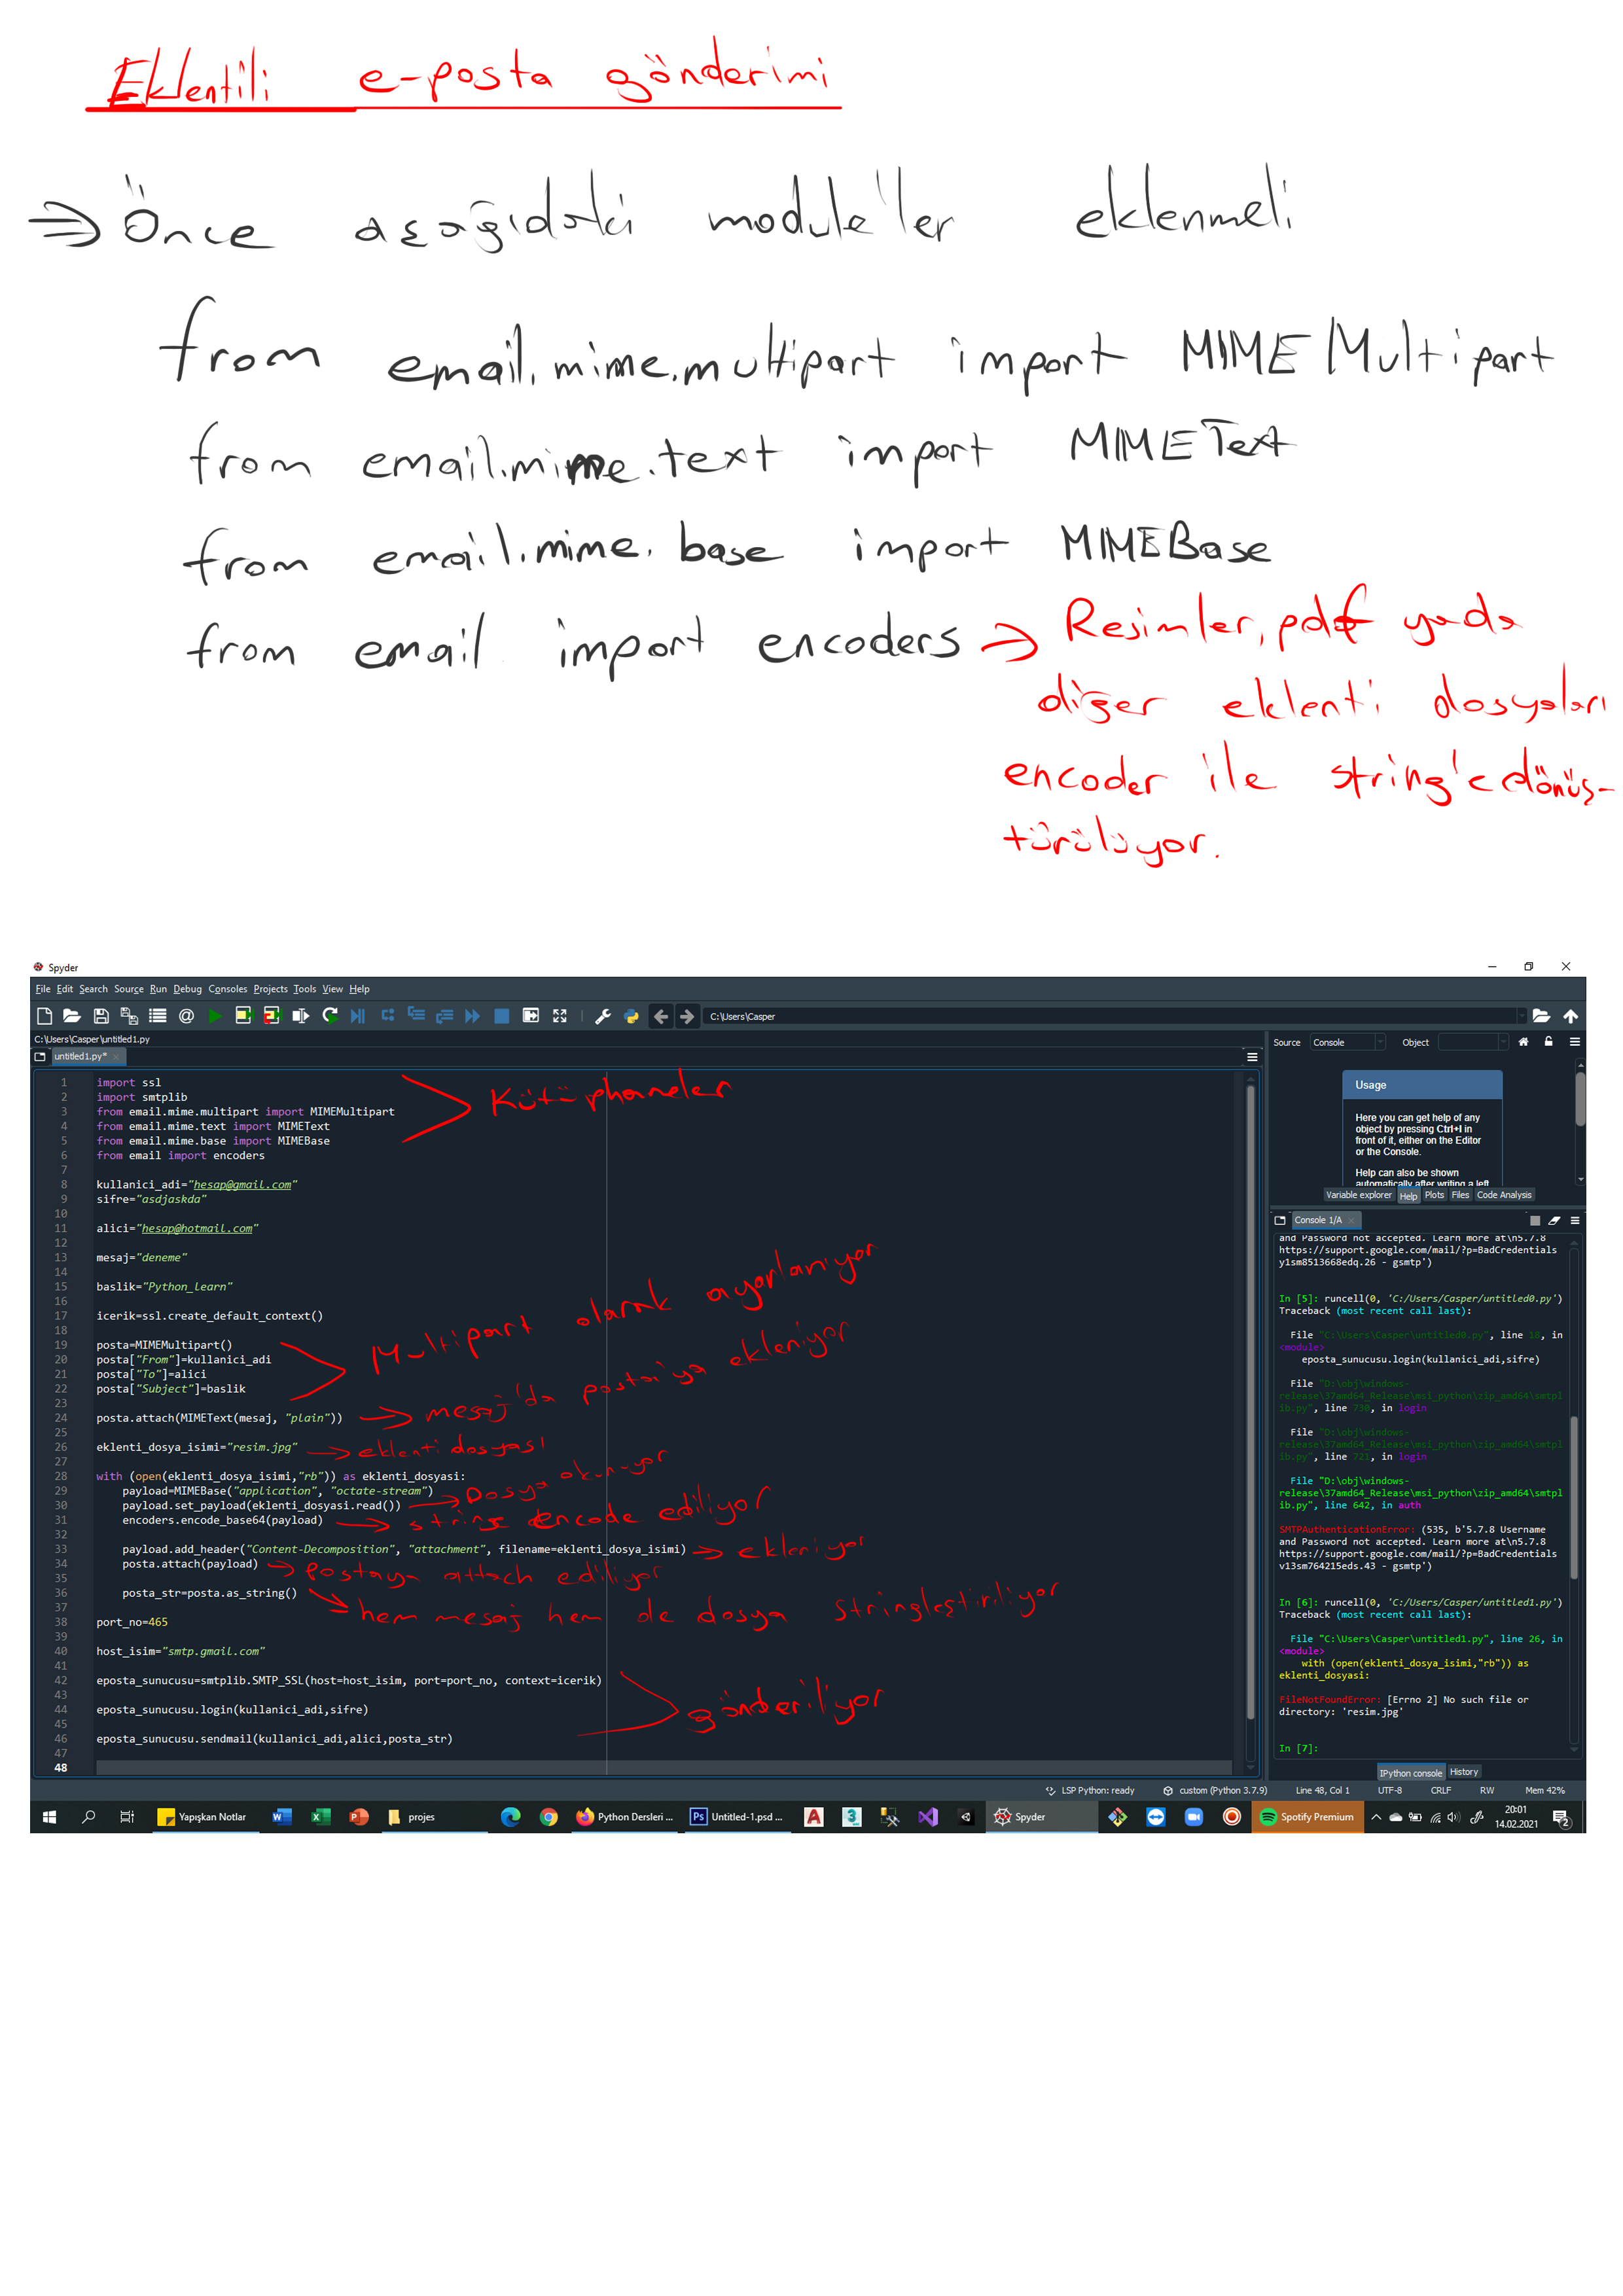 Eklentili e-posta gönderimi
⇒ Önce aşağıdaki module'ler eklenmeli
from email.mime.multipart import MIMEMultipart
from email.mime.text import MIMEText
from email.mime.base import MIMEBase
from email import encoders → Resimler, pdf yada
diğer eklenti dosyaları
encoder ile string'e dönüş-
türülüyor.
Spyder
File Edit Search Source Run Debug Consoles Projects Tools View Help
C:\Users\Casper
C:\Users\Casper\untitled1.py
untitled1.py*
1 import ssl
2 import smtplib
Kütüphaneler
3 from email.mime.multipart import MIMEMultipart
4 from email.mime.text import MIMEText
5 from email.mime.base import MIMEBase
6 from email import encoders
7
8 kullanici_adi="hesap@gmail.com"
9 sifre="asdjaskda"
10
11 alici="hesap@hotmail.com"
12
13 mesaj="deneme"
14
15 baslik="Python_learn"
16
17 icerik=ssl.create_default_context()
18
19 posta=MIMEMultipart()
20 posta["From"]=kullanici_adi
Multipart olarak ayarlanıyor
21 posta["To"]=alici
22 posta["Subject"]=baslik
23
24 posta.attach(MIMEText(mesaj, "plain")) → mesaj'da postaya ekleniyor
25
26 eklenti_dosya_isimi="resim.jpg" → eklenti dosyası
27
28 with (open(eklenti_dosya_isimi,"rb")) as eklenti_dosyasi:
29 payload=MIMEBase("application", "octate-stream")
30 payload.set_payload(eklenti_dosyasi.read()) → Dosya okunuyor
31 encoders.encode_base64(payload) → string encode ediliyor
32
33 payload.add_header("Content-Decomposition", "attachment", filename=eklenti_dosya_isimi) → ekleniyor
34 posta.attach(payload) → postaya attach ediliyor
35
36 posta_str=posta.as_string() → hem mesaj hem de dosya stringleştiriliyor
37
38 port_no=465
39
40 host_isim="smtp.gmail.com"
41
42 eposta_sunucusu=smtplib.SMTP_SSL(host=host_isim, port=port_no, context=icerik)
43
gönderiliyor
44 eposta_sunucusu.login(kullanici_adi,sifre)
45
46 eposta_sunucusu.sendmail(kullanici_adi,alici,posta_str)
47
48
Source Console Object
Usage
Here you can get help of any
object by pressing Ctrl+I in
front of it, either on the Editor
or the Console.
Help can also be shown
automatically after writing a left
Variable explorer Help Plots Files Code Analysis
Console 1/A
and Password not accepted. Learn more at\n5.7.8
https://support.google.com/mail/?p=BadCredentials
y1sm8513668edq.26 - gsmtp')
In [5]: runcell(0, 'C:/Users/Casper/untitled0.py')
Traceback (most recent call last):
File "C:\Users\Casper\untitled0.py", line 18, in
<module>
eposta_sunucusu.login(kullanici_adi,sifre)
File "D:\obj\windows-
release\37amd64_Release\msi_python\zip_amd64\smtpl
ib.py", line 730, in login
File "D:\obj\windows-
release\37amd64_Release\msi_python\zip_amd64\smtpl
ib.py", line 721, in login
File "D:\obj\windows-
release\37amd64_Release\msi_python\zip_amd64\smtpl
ib.py", line 642, in auth
SMTPAuthenticationError: (535, b'5.7.8 Username
and Password not accepted. Learn more at\n5.7.8
https://support.google.com/mail/?p=BadCredentials
v13sm764215eds.43 - gsmtp')
In [6]: runcell(0, 'C:/Users/Casper/untitled1.py')
Traceback (most recent call last):
File "C:\Users\Casper\untitled1.py", line 26, in
<module>
with (open(eklenti_dosya_isimi,"rb")) as
eklenti_dosyasi:
FileNotFoundError: [Errno 2] No such file or
directory: 'resim.jpg'
In [7]:
IPython console History
LSP Python: ready custom (Python 3.7.9) Line 48, Col 1 UTF-8 CRLF RW Mem 42%
Yapışkan Notlar projes Python Dersleri ... Untitled-1.psd ... Spyder Spotify Premium 20:01
14.02.2021 2